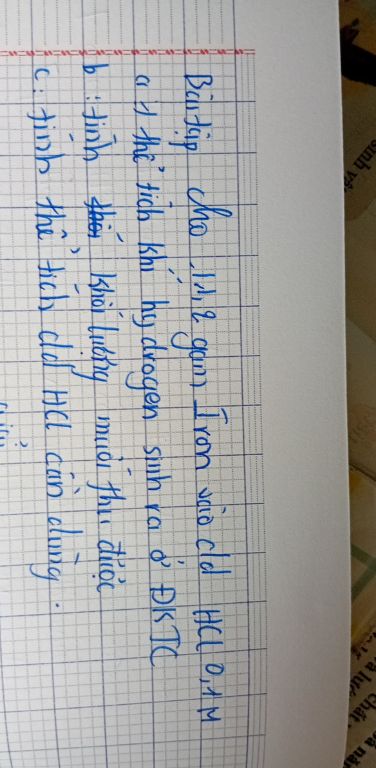 Bài tập cho 11,2 gam Iron vào dd HCl 0,1M
a: thể tích khí hydrogen sinh ra ở ĐKTC
b: tính khối lượng muối thu được
c: tính thể tích dd HCl cần dùng.